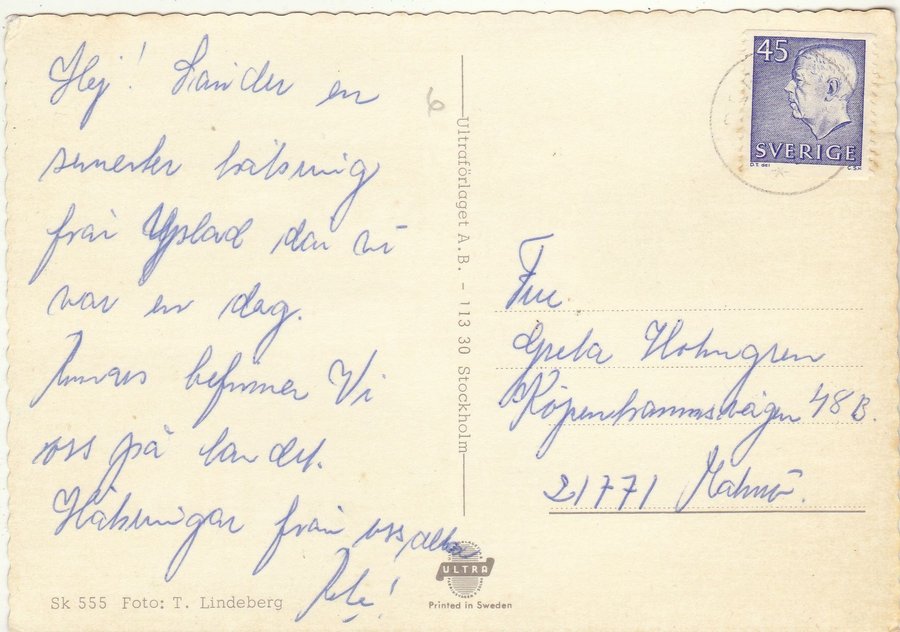 Hej! Sänder en
semester hälsning
från Ystad där vi
var en dag.
Annars befinner Vi
oss på landet.
Hälsningar från oss alla
Sk 555 Foto: T. Lindeberg
Ultraförlaget A.B. - 113 30 Stockholm
ULTRA
Printed in Sweden
45
SVERIGE
Fru
Greta Holmgren
Köpenhamnsvägen 48 B.
21771 Malmö.
6